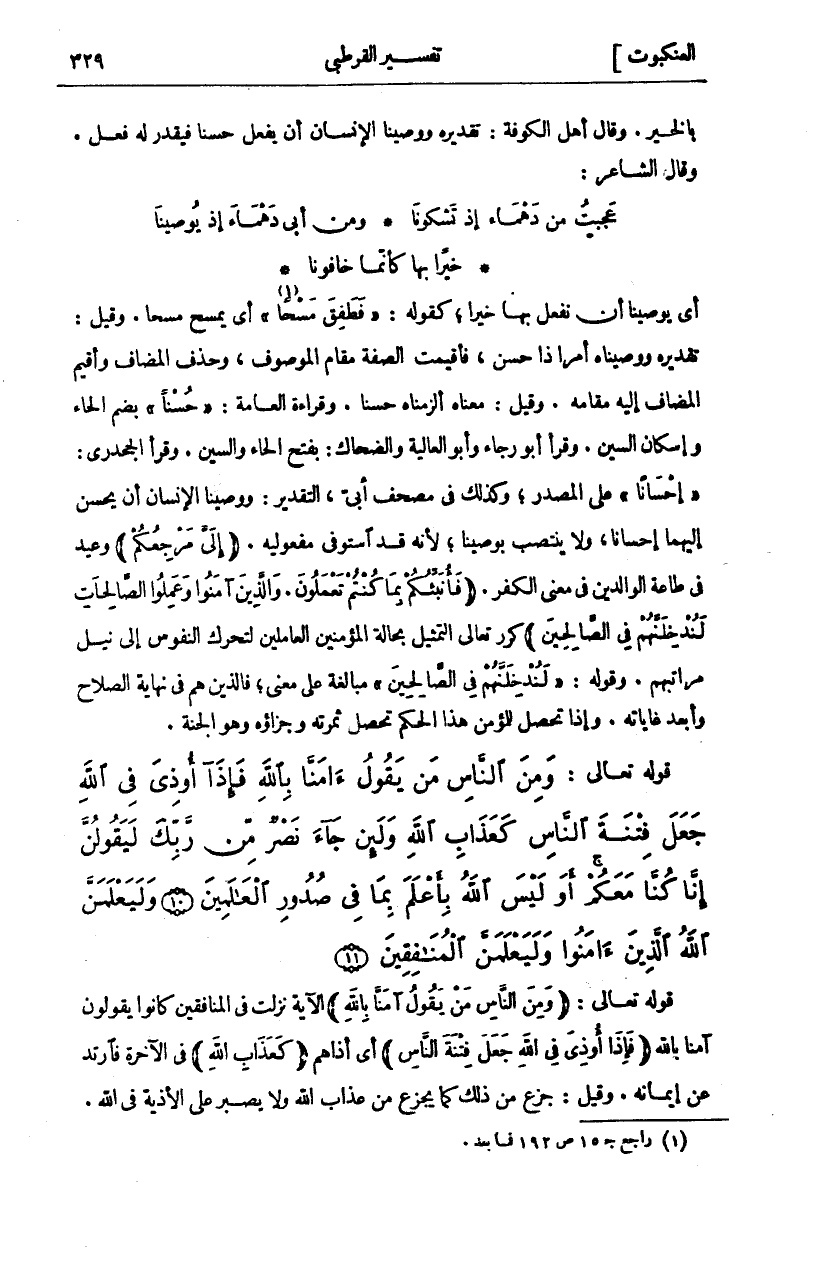 العنكبوت ] تفسير القرطبي ٣٢٩
بالخير . وقال أهل الكوفة : تقديره ووصينا الإنسان أن يفعل حسنا فيقدر له فعل .
وقال الشاعر :
عَجبتُ من دَهْمَاء إذ تَشكونَا * ومن أبى دَهْمَاءَ إذ يُوصينَا
* خيرًا بها كأنّما خافونا *
أى يوصينا أن نفعل بها خيرا ؛ كقوله : « فَطَفِقَ مَسْحًا (١) » أى يمسح مسحا . وقيل :
تقديره ووصيناه أمرا ذا حسن ، فأقيمت الصفة مقام الموصوف ، وحذف المضاف وأقيم
المضاف إليه مقامه . وقيل : معناه ألزمناه حسنا . وقراءة العامة : « حُسْنًا » بضم الحاء
و إسكان السين . وقرأ أبو رجاء وأبو العالية والضحاك : بفتح الحاء والسين . وقرأ الجحدرى :
« إحْسَانًا » على المصدر ؛ وكذلك فى مصحف أبىّ ، التقدير : ووصينا الإنسان أن يحسن
إليهما إحسانا ، ولا ينتصب بوصينا ؛ لأنه قد آستوفى مفعوليه . ( إِلَىَّ مَرْجِعُكُمْ ) وعيد
فى طاعة الوالدين فى معنى الكفر . ( فَأُنَبِّئُكُمْ بِمَا كُنْتُمْ تَعْمَلُونَ . وَالَّذِينَ آمَنُوا وَعَمِلُوا الصَّالِحَاتِ
لَنُدْخِلَنَّهُمْ فِى الصَّالِحِينَ ) كرر تعالى التمثيل بحالة المؤمنين العاملين لتحرك النفوس إلى نيل
مراتبهم . وقوله : « لَنُدْخِلَنَّهُمْ فِى الصَّالِحِينَ » مبالغة على معنى ؛ فالذين هم فى نهاية الصلاح
وأبعد غاياته . وإذا تحصل للؤمن هذا الحكم تحصل ثمرته وجزاؤه وهو الجنة .
قوله تعالى : وَمِنَ ٱلنَّاسِ مَن يَقُولُ ءَامَنَّا بِٱللَّهِ فَإِذَآ أُوذِىَ فِى ٱللَّهِ
جَعَلَ فِتْنَةَ ٱلنَّاسِ كَعَذَابِ ٱللَّهِ وَلَئِن جَآءَ نَصْرٌ مِّن رَّبِّكَ لَيَقُولُنَّ
إِنَّا كُنَّا مَعَكُمْ ۚ أَوَ لَيْسَ ٱللَّهُ بِأَعْلَمَ بِمَا فِى صُدُورِ ٱلْعَٰلَمِينَ ﴿١٠﴾ وَلَيَعْلَمَنَّ
ٱللَّهُ ٱلَّذِينَ ءَامَنُوا وَلَيَعْلَمَنَّ ٱلْمُنَٰفِقِينَ ﴿١١﴾
قوله تعالى : ( وَمِنَ النَّاسِ مَنْ يَقُولُ آمَنَّا بِاللَّهِ ) الآية نزلت فى المنافقين كانوا يقولون
آمنا بالله ( فَإِذَا أُوذِىَ فِى اللَّهِ جَعَلَ فِتْنَةَ النَّاسِ ) أى أذاهم ( كَعَذَابِ اللَّهِ ) فى الآخرة فآرتد
عن إيمانه . وقيل : جزع من ذلك كما يجزع من عذاب الله ولا يصبر على الأذية فى الله .
(١) راجع جـ ١٥ ص ١٩٢ فما بعد .